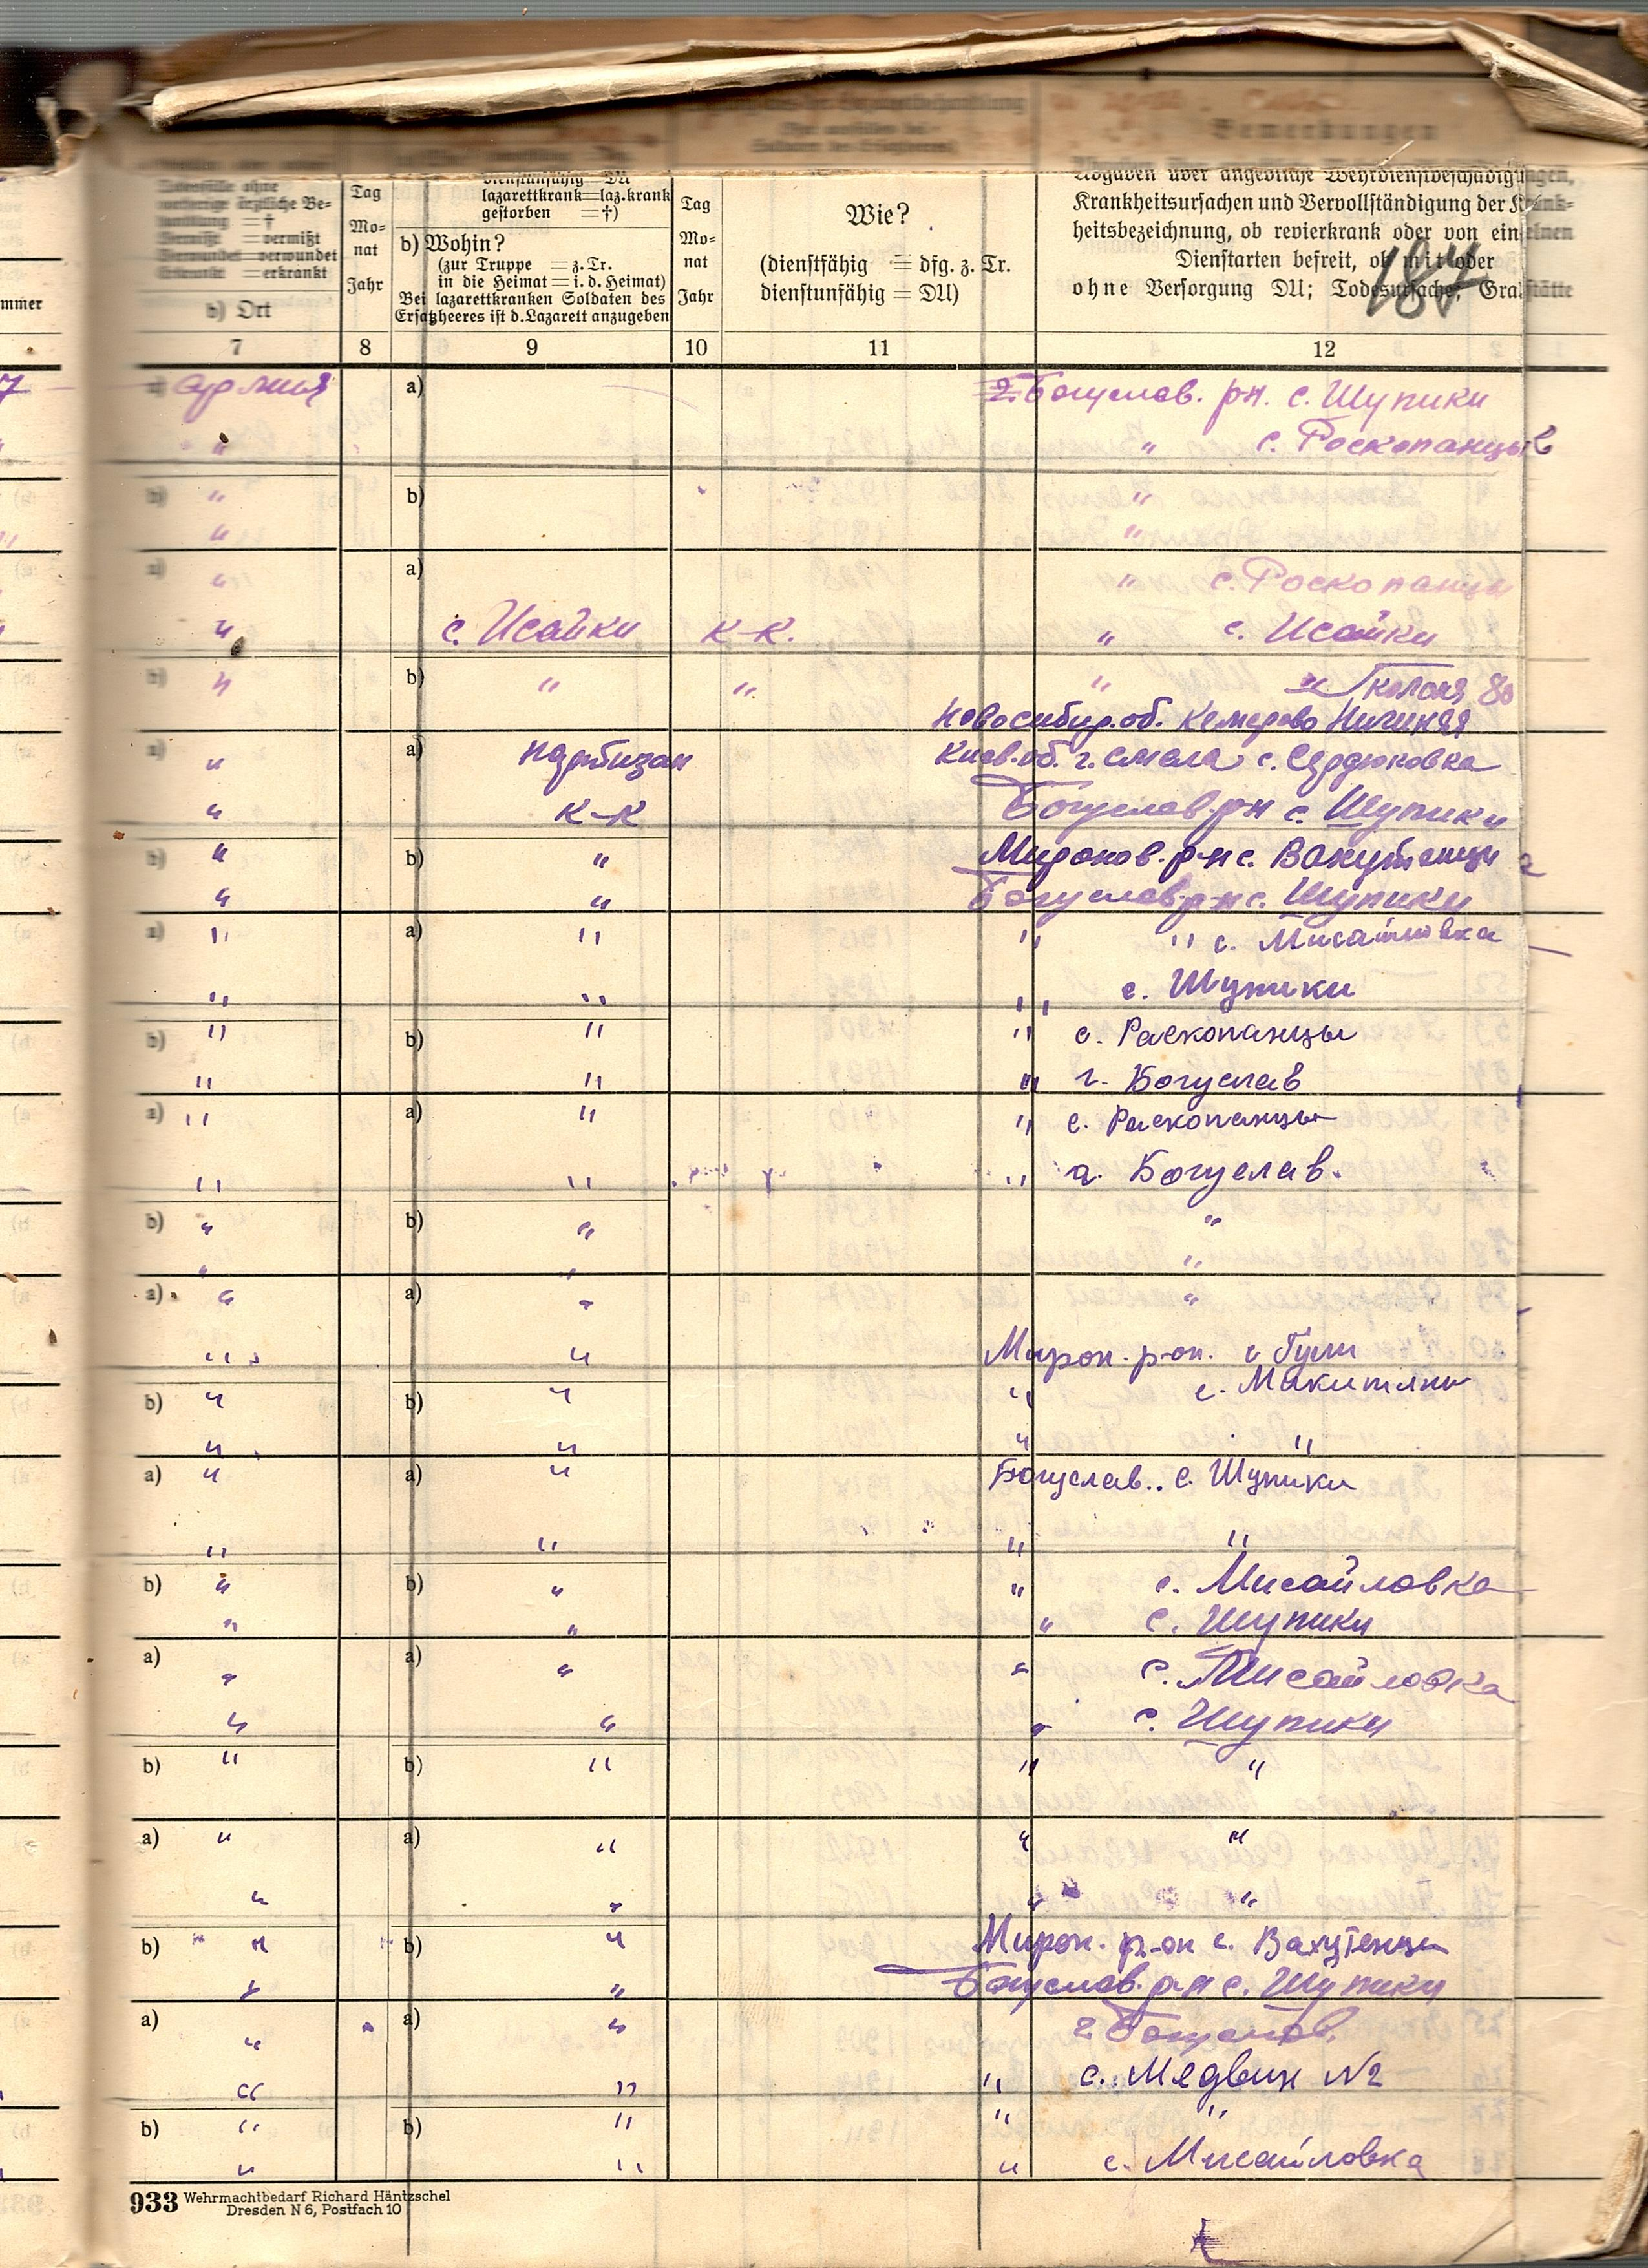 Bemerkungen
Todesfälle ohne
vorherige ärztliche Be-
handlung = †
Vermißt = vermißt
Verwundet = verwundet
Erkrankt = erkrankt
b) Ort
Tag
Mo-
nat
Jahr
dienstunfähig = DU
lazarettkrank = laz. krank
gestorben = †)
b) Wohin?
(zur Truppe = z. Tr.
in die Heimat = i. d. Heimat)
Bei lazarettkranken Soldaten des
Ersatzheeres ist d. Lazarett anzugeben
Tag
Mo-
nat
Jahr
Wie?
(dienstfähig = dfg. z. Tr.
dienstunfähig = DU)
Angaben über angebliche Wehrdienstbeschädigungen,
Krankheitsursachen und Vervollständigung der Krank-
heitsbezeichnung, ob revierkrank oder von einzelnen
Dienstarten befreit, ob mit oder
ohne Versorgung DU; Todesursache; Grabstätte
187
mmer
7 8 9 10 11 12
a) армия a) Богуслав. рн. с. Шупики
" " с. Роскопанцы
b) " b) "
" "
a) " a) " с. Роскопанцы
" с. Исайки к-к. " с. Исайки
b) " b) " " " "
Новосибир. об. Кемерово
a) " a) партизан Киев. об. г. Смела с. Сердюковка
" к-к Богуслав. рн с. Шупики
b) " b) " Миронов. р-н с.
" " Богуслав р-н с. Шупики
a) " a) " " " с. Мисайловка
" " " с. Шупики
b) " b) " " с. Раскопанцы
" " " г. Богуслав
a) " a) " " с. Раскопанцы
" " " г. Богуслав.
b) " b) " "
" " "
a) " a) " "
" " Мирон. р-он. с
b) " b) " " с.
" " " "
a) " a) " Богуслав.. с. Шупики
" " " "
b) " b) " " с. Мисайловка
" " " с. Шупики
a) " a) " " с. Мисайловка
" " " с. Шупики
b) " b) " " "
a) " a) " " "
" " " "
b) " b) " Мирон. р-он с.
" " Богуслав. р-н с. Шупики
a) " a) " г Богуслав.
" " " с. Медвин №2
b) " b) " " "
" " " с. Мисайловка
933 Wehrmachtbedarf Richard Häntzschel
Dresden N 6, Postfach 10